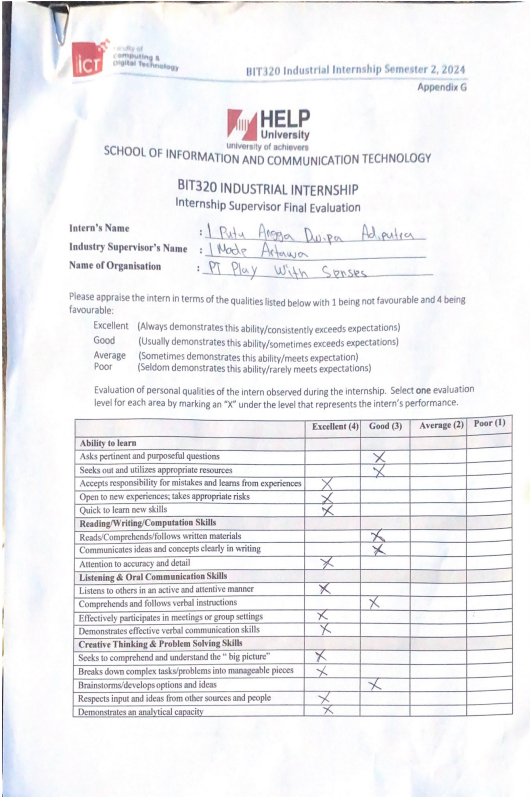 ict
Faculty of
Computing &
Digital Technology
BIT320 Industrial Internship Semester 2, 2024
Appendix G
HELP
University
university of achievers
SCHOOL OF INFORMATION AND COMMUNICATION TECHNOLOGY
BIT320 INDUSTRIAL INTERNSHIP
Internship Supervisor Final Evaluation
Intern's Name : I Putu Angga Dwipa Adiputra
Industry Supervisor's Name : I Made Artawa
Name of Organisation : PT Play With Senses
Please appraise the intern in terms of the qualities listed below with 1 being not favourable and 4 being
favourable:
Excellent (Always demonstrates this ability/consistently exceeds expectations)
Good (Usually demonstrates this ability/sometimes exceeds expectations)
Average (Sometimes demonstrates this ability/meets expectation)
Poor (Seldom demonstrates this ability/rarely meets expectations)
Evaluation of personal qualities of the intern observed during the internship. Select one evaluation
level for each area by marking an "X" under the level that represents the intern's performance.
Excellent (4) Good (3) Average (2) Poor (1)
Ability to learn
Asks pertinent and purposeful questions X
Seeks out and utilizes appropriate resources X
Accepts responsibility for mistakes and learns from experiences X
Open to new experiences; takes appropriate risks X
Quick to learn new skills X
Reading/Writing/Computation Skills
Reads/Comprehends/follows written materials X
Communicates ideas and concepts clearly in writing X
Attention to accuracy and detail X
Listening & Oral Communication Skills
Listens to others in an active and attentive manner X
Comprehends and follows verbal instructions X
Effectively participates in meetings or group settings X
Demonstrates effective verbal communication skills X
Creative Thinking & Problem Solving Skills
Seeks to comprehend and understand the " big picture" X
Breaks down complex tasks/problems into manageable pieces X
Brainstorms/develops options and ideas X
Respects input and ideas from other sources and people X
Demonstrates an analytical capacity X